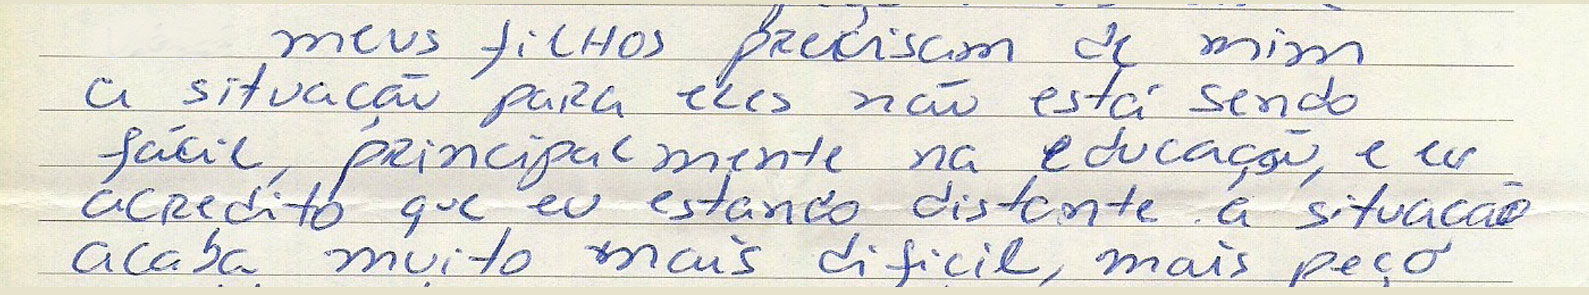 meus filhos precisam de mim
a situação para eles não está sendo
fácil, principalmente na educação, e eu
acredito que eu estando distante a situação
acaba muito mais dificil, mais peço